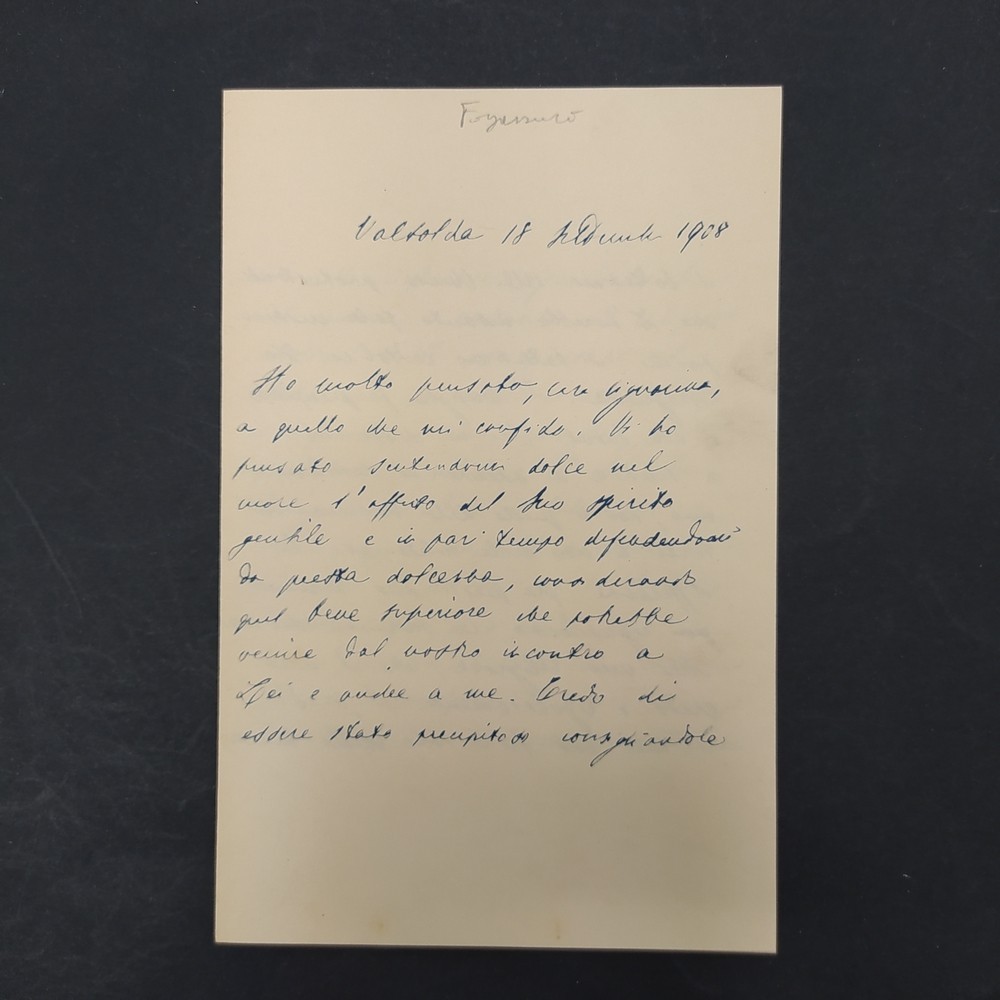 Fogazzaro
Valsolda 18 settembre 1908
Ho molto pensato, cara signorina,
a quello che mi confida. Vi ho
pensato sentendomi dolce nel
cuore l'affetto del Suo spirito
gentile e in pari tempo difendendomi
da questa dolcezza, considerando
quel bene superiore che potrebbe
venire dal nostro incontro a
Lei e anche a me. Credo di
essere stato precipitoso consigliandole